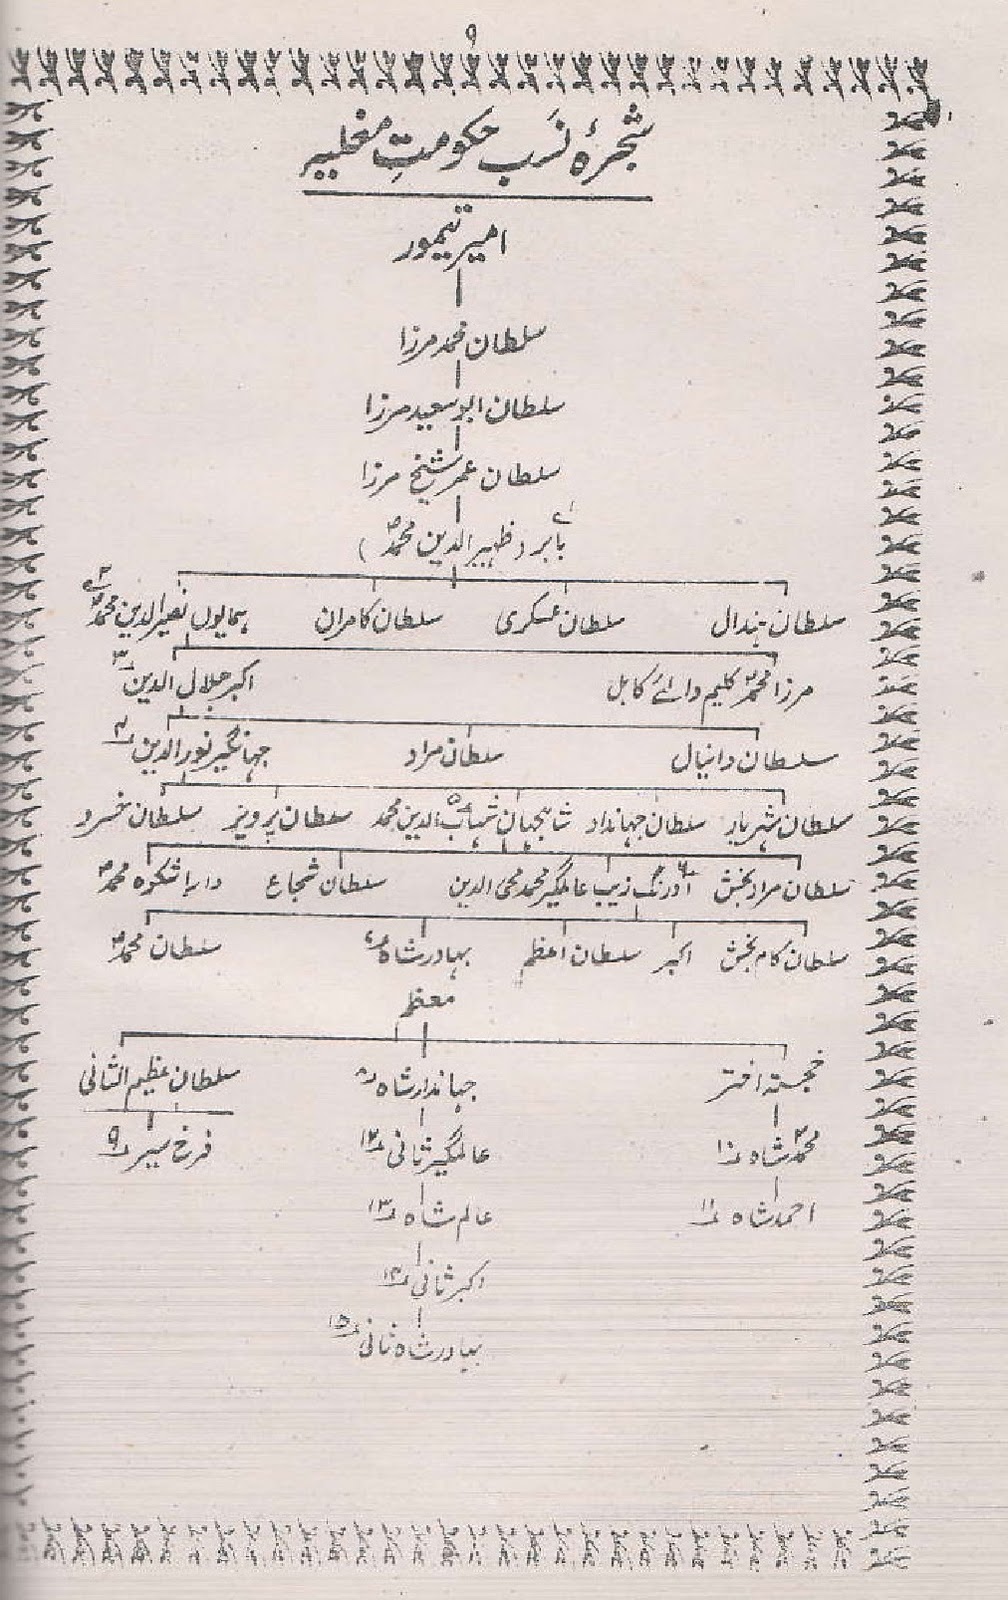 ۹
شجرۂ نسب حکومتِ مغلیہ
امیر تیمور
سلطان محمد مرزا
سلطان ابو سعید مرزا
سلطان عمر شیخ مرزا
بابر (ظہیر الدین محمدؐ) ۱
سلطان ہندال سلطان عسکری سلطان کامران ہمایوں نصیر الدین محمدؐ ۲
مرزا محمدؐ کلیم والئے کابل اکبر جلال الدین ۳
سلطان دانیال سلطان مراد جہانگیر نور الدین ۴
سلطان شہریار سلطان جہاندار شاہجہان شہاب الدین محمد ۵ سلطان پرویز سلطان خسرو
سلطان مراد بخش اورنگ زیب عالمگیر محمد محی الدین ۶ سلطان شجاع دارا شکوہ محمدؐ
سلطان کام بخش اکبر سلطان اعظم بہادر شاہ ۷ سلطان محمدؐ
معظم
خجستہ اختر جہاندار شاہ ۸ سلطان عظیم الثانی
محمدؐ شاہ ۱۰ عالمگیر ثانی ۱۲ فرخ سیر ۹
احمد شاہ ۱۱ عالم شاہ ۱۳
اکبر ثانی ۱۴
بہادر شاہ ثانی ۱۵